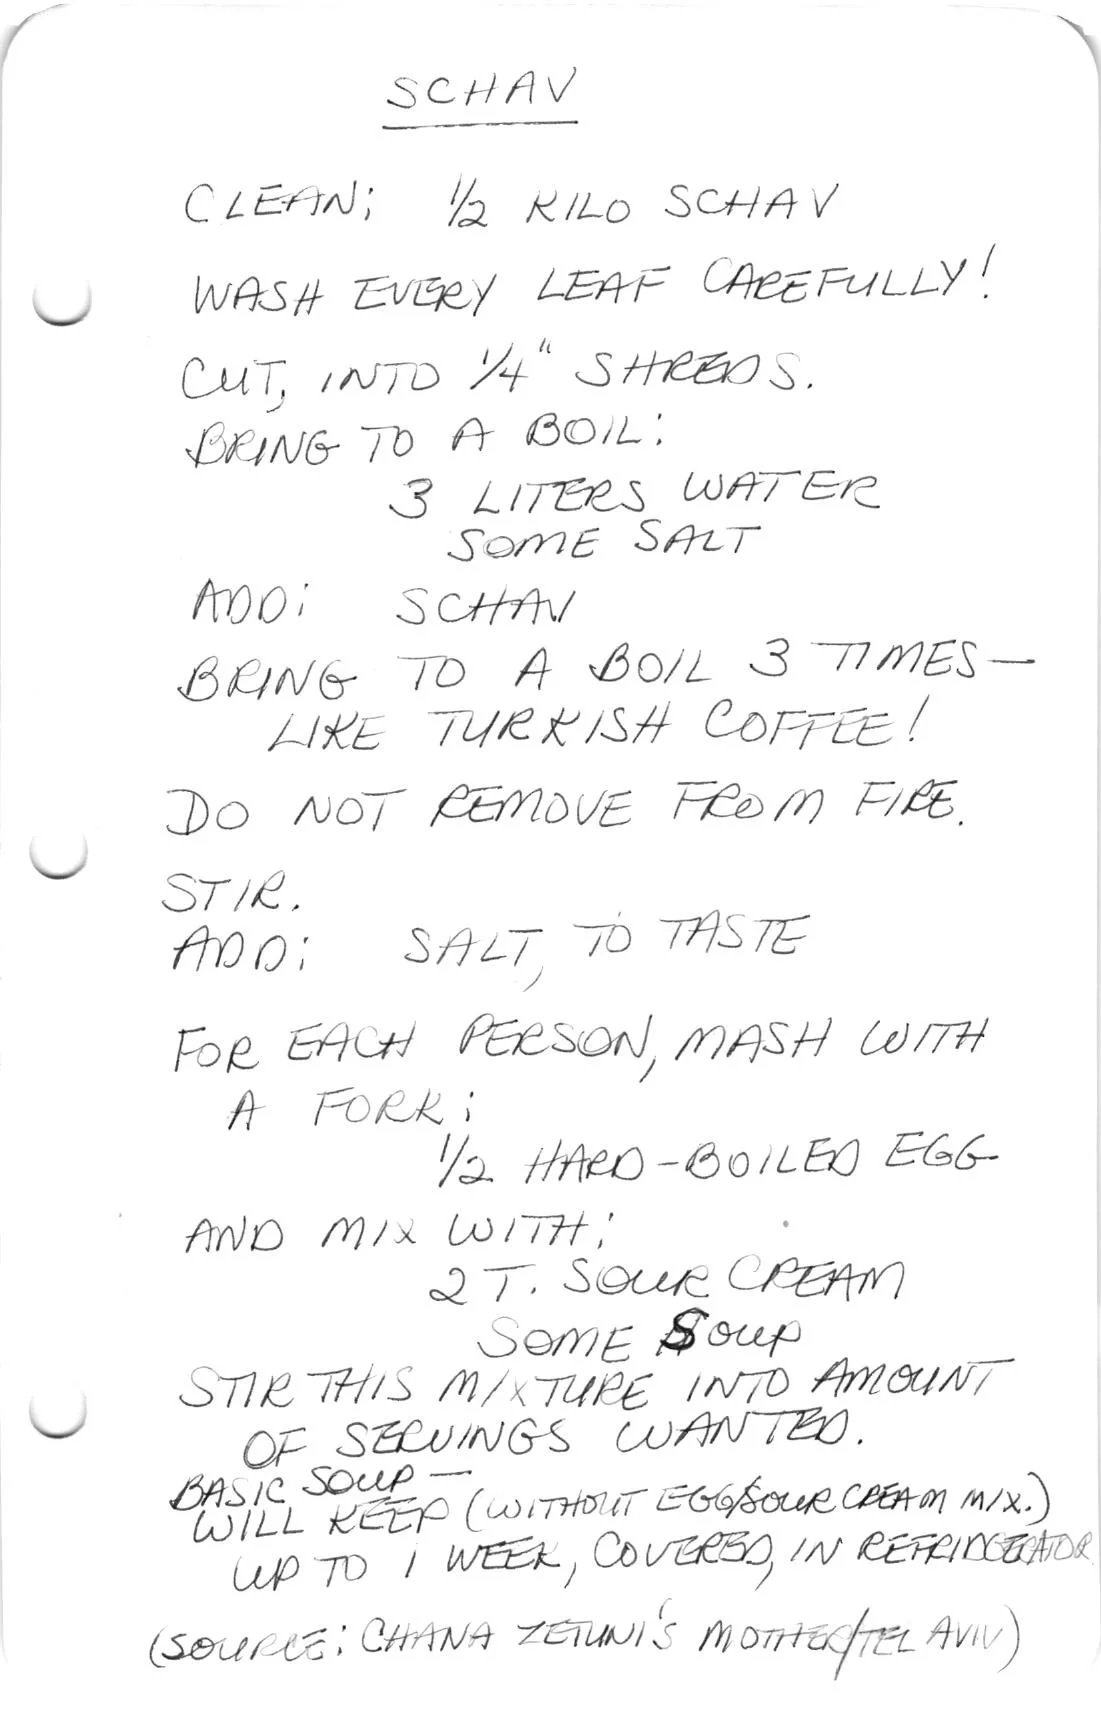 SCHAV
CLEAN: 1/2 KILO SCHAV
WASH EVERY LEAF CAREFULLY!
CUT, INTO 1/4" SHREDS.
BRING TO A BOIL:
3 LITERS WATER
SOME SALT
ADD: SCHAV
BRING TO A BOIL 3 TIMES—
LIKE TURKISH COFFEE!
DO NOT REMOVE FROM FIRE.
STIR.
ADD: SALT, TO TASTE
FOR EACH PERSON, MASH WITH
A FORK:
1/2 HARD-BOILED EGG
AND MIX WITH:
2 T. SOUR CREAM
SOME SOUP
STIR THIS MIXTURE INTO AMOUNT
OF SERVINGS WANTED.
BASIC SOUP—
WILL KEEP (WITHOUT EGG/SOUR CREAM MIX.)
UP TO 1 WEEK, COVERED, IN REFRIDGERATOR
(SOURCE: CHANA ZETUNI'S MOTHER/TEL AVIV)